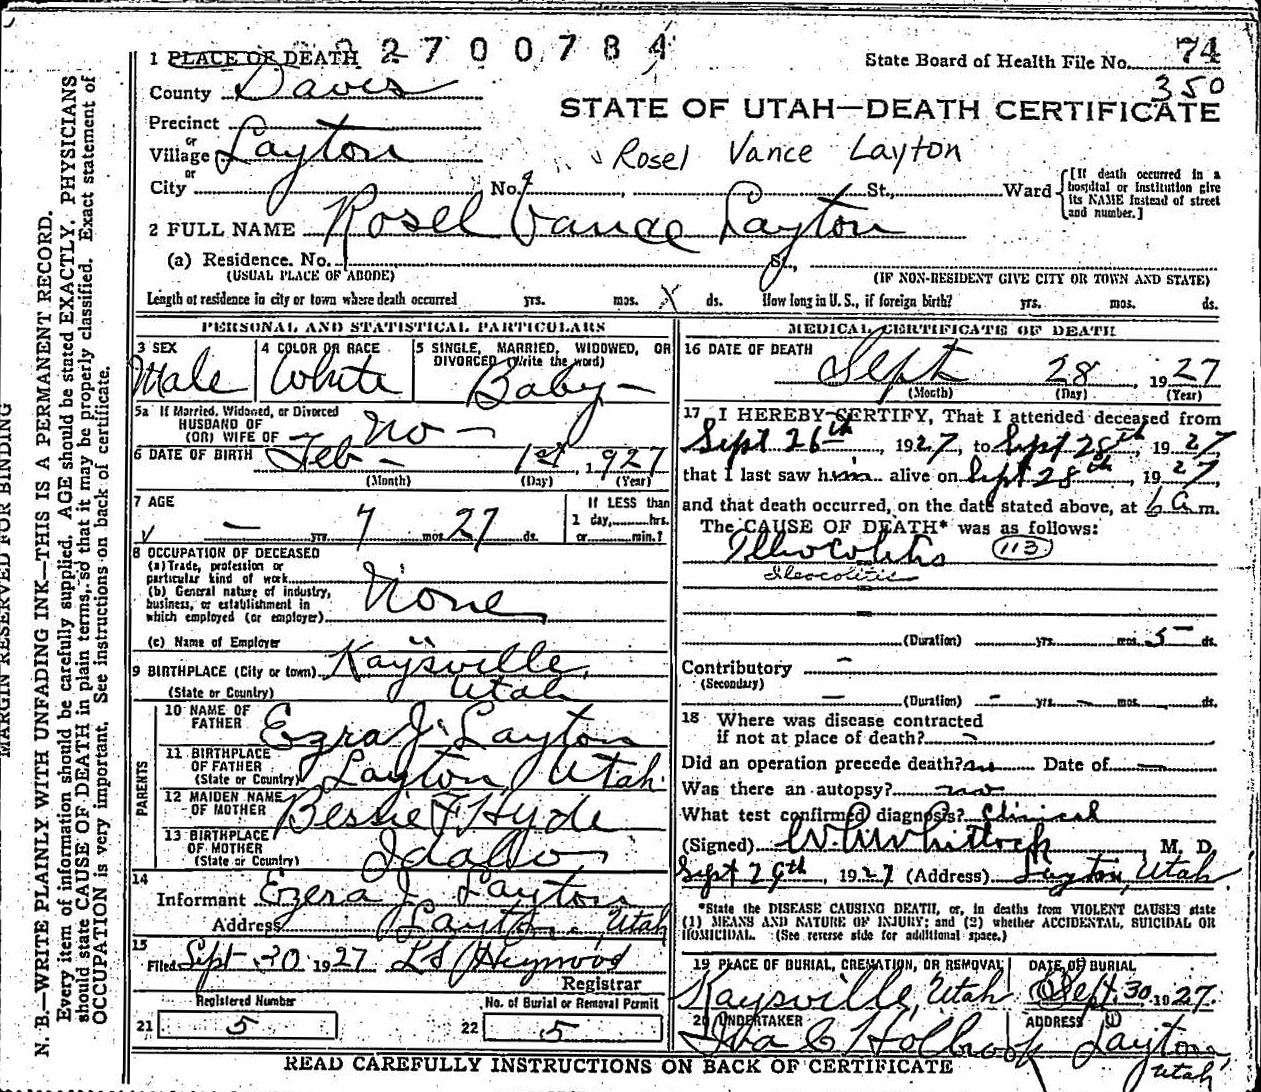 2700784
1 PLACE OF DEATH
State Board of Health File No. 74
350
County Davis
STATE OF UTAH—DEATH CERTIFICATE
Precinct
or
Village Layton
Rosel Vance Layton
or
City No. St., Ward
[If death occurred in a hospital or Institution give its NAME instead of street and number.]
2 FULL NAME Rosel Vance Layton
(a) Residence. No. St.,
(USUAL PLACE OF ABODE) (IF NON-RESIDENT GIVE CITY OR TOWN AND STATE)
Length of residence in city or town where death occurred yrs. mos. X ds. How long in U. S., if foreign birth? yrs. mos. ds.
PERSONAL AND STATISTICAL PARTICULARS
3 SEX
Male
4 COLOR OR RACE
White
5 SINGLE, MARRIED, WIDOWED, OR DIVORCED (Write the word)
Baby —
5a If Married, Widowed, or Divorced
HUSBAND OF
(OR) WIFE OF — No —
6 DATE OF BIRTH Feb — 1st, 1927
(Month) (Day) (Year)
7 AGE
— yrs. 7 mos. 27 ds.
If LESS than
1 day, hrs.
or min.?
8 OCCUPATION OF DECEASED
(a) Trade, profession or
particular kind of work
(b) General nature of industry,
business, or establishment in
which employed (or employer) None
(c) Name of Employer
9 BIRTHPLACE (City or town) Kaysville,
(State or Country) Utah
PARENTS
10 NAME OF
FATHER Ezra J. Layton
11 BIRTHPLACE
OF FATHER
(State or Country) Layton Utah.
12 MAIDEN NAME
OF MOTHER Bessie F Hyde
13 BIRTHPLACE
OF MOTHER
(State or Country) Idaho
14
Informant Ezera J. Layton
Address Layton, Utah
15
Filed Sept 30 1927 Heywood
Registrar
Registered Number
21 5
No. of Burial or Removal Permit
22 5
MEDICAL CERTIFICATE OF DEATH
16 DATE OF DEATH
Sept 28, 1927
(Month) (Day) (Year)
17 I HEREBY CERTIFY, That I attended deceased from
Sept 26th, 1927, to Sept 28th, 1927,
that I last saw him alive on Sept 28th, 1927,
and that death occurred, on the date stated above, at 6 a.m.
The CAUSE OF DEATH* was as follows:
Illiocolitis 113
Ileocolitis
(Duration) yrs. mos. 5 ds.
Contributory —
(Secondary)
— (Duration) — yrs. — mos. ds.
18 Where was disease contracted
if not at place of death?
Did an operation precede death? no Date of —
Was there an autopsy? no
What test confirmed diagnosis? Clinical
(Signed) W. M Whitlock, M. D.
Sept 29th, 1927 (Address) Layton, Utah
*State the DISEASE CAUSING DEATH, or, in deaths from VIOLENT CAUSES state
(1) MEANS AND NATURE OF INJURY; and (2) whether ACCIDENTAL, SUICIDAL OR
HOMICIDAL. (See reverse side for additional space.)
19 PLACE OF BURIAL, CREMATION, OR REMOVAL
Kaysville, Utah
DATE OF BURIAL
Sept. 30 1927.
20 UNDERTAKER
Iva C Holbrook
ADDRESS
Layton,
Utah
READ CAREFULLY INSTRUCTIONS ON BACK OF CERTIFICATE
MARGIN RESERVED FOR BINDING
N. B.—WRITE PLAINLY WITH UNFADING INK—THIS IS A PERMANENT RECORD.
Every item of information should be carefully supplied. AGE should be stated EXACTLY. PHYSICIANS
should state CAUSE OF DEATH in plain terms, so that it may be properly classified. Exact statement of
OCCUPATION is very important. See instructions on back of certificate.